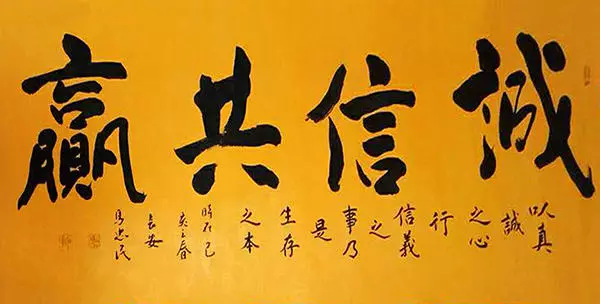 誠信共贏
以真
誠
之心
行
信義
之
事乃
是
生存
之本
時在己
亥春
長安
馬忠民